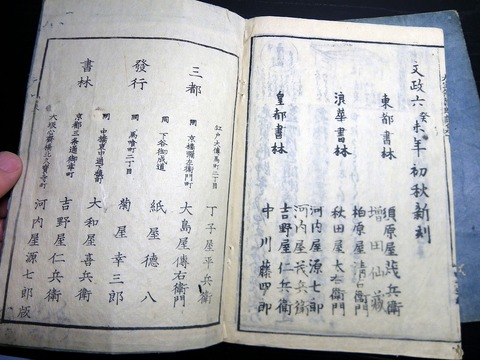 文政六癸未年初秋新刻
東都書林
須原屋茂兵衛
増田仙蔵
柏原屋清右衛門
浪華書林
秋田屋太右衛門
河内屋源七郎
河内屋茂兵衛
皇都書林
吉野屋仁兵衛
中川藤四郎
三都
發行
書林
江戸大傳馬町二丁目
丁子屋平兵衛
同 京橋彌左衛門町
大島屋傳右衛門
同 下谷御成道
紙屋徳八
同 馬喰町二丁目
菊屋幸三郎
同 中橋
大和屋喜兵衛
京都三条通御幸町
吉野屋仁兵衛
大坂心齋橋北久寶寺町
河内屋源七郎版